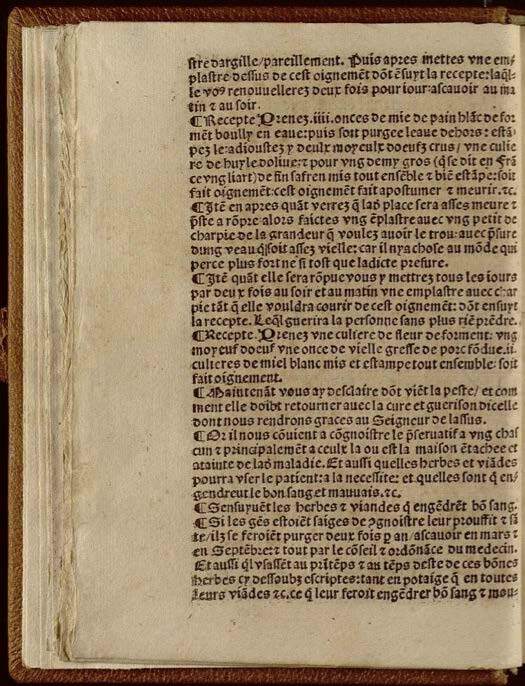 stre dargille/pareillement. Puis apres mettes vne em-
plastre dessus de cest oignemēt dōt ēsuyt la recepte: laq̄l-
le vo9 renouuellerez deux fois pour iour: ascauoir au ma
tin ⁊ au soir.
¶Recepte Prenez.iiii.onces de mie de pain blāc de for
mēt boully en eaue: puis soit purgee leaue dehors: estā-
pez le: adioustez y deulx moyeulx doeufz crus/ vne culie
re de huyle doliue: ⁊ pour vng demy gros (q̄ se dit en Frā
ce vng liart) de fin safren mis tout ensēble ⁊ biē estāpe: soit
fait oignemēt: cest oignemēt fait apostumer ⁊ meurir.⁊c.
¶Itē en apres quāt verrez q̄ lad̄ place sera asses meure ⁊
p̄ste a rōpre alors faictes vng ēplastre auec vng petit de
charpie de la grandeur q̄ voulez auoir le trou: auec p̄sure
dung veau q̄ soit assez vielle: car il nya chose au mōde qui
perce plus fort ne si tost que ladicte presure.
¶Itē quāt elle sera rōpue vous y mettrez tous les iours
par deux fois au soir et au matin vne emplastre auec char
pie tāt q̄ elle vouldra courir de cest oignemēt: dōt ensuyt
la recepte. Leq̄l guerira la personne sans plus riē prēdre.
¶Recepte. Prenez vne culiere de fleur de forment: vng
moyeuf doeuf vne once de vielle gresse de porc fōdue.ii.
culieres de miel blanc mis et estampe tout ensemble: soit
fait oignement.
¶Maintenāt vous ay desclaire dōt viēt la peste/ et com
ment elle doibt retourner auec la cure et guerison dicelle
dont nous rendrons graces au Seigneur de lassus.
¶Or il nous cōuient a cōgnoistre le p̄seruatif a vng chas
cun ⁊ principalemēt a ceulx la ou est la maison ētachee et
ataiute de lad̄ maladie. Et aussi quelles herbes et viādes
pourra vser le patient: a la necessite: et quelles sont q̄ en-
gendreut le bon sang et mauuais.⁊c.
¶Sensuyuēt les herbes ⁊ viandes q̄ engēdrēt bō sang.
¶Si les gēs estoiēt saiges de ꝯgnoistre leur prouffit ⁊ sā
te/ ilz se feroiēt purger deux fois ꝑ an/ ascauoir en mars ⁊
en Septēbre: ⁊ tout par le cōseil ⁊ ordōnāce du medecin.
Et aussi q̄l vsassēt au prītēps ⁊ au tēps deste de ces bōnes
herbes cy dessoubz escriptes: tant en potaige q̄ en toutes
leurs viādes ⁊c. ce q̄ leur feroit engēdrer bō sang ⁊ mou-